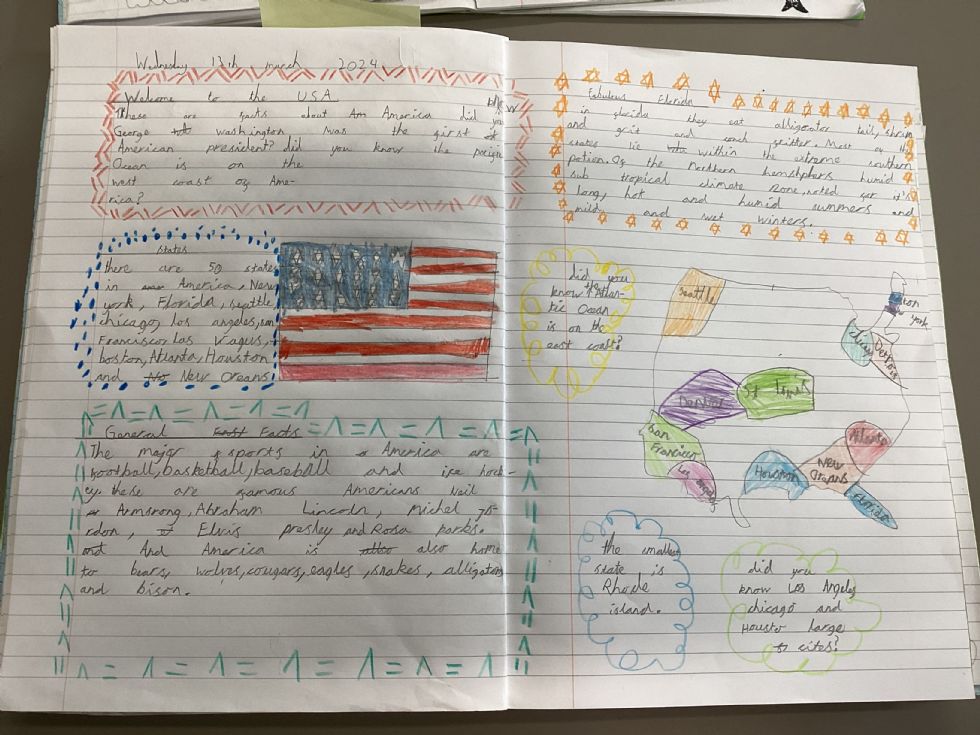 Wednesday 13th march 2024
Welcome to the USA
These are facts about Am America did you
George washington was the first
American president? did you know the pacific
Ocean is on the
west coast of Ame-
rica?
states
there are 50 states
in America, New
york, Florida, seattle
chicago, Los angeles, san
Francisco, Las vagus,
boston, Atlanta, Houston
and No New Oreans
General Fast Facts
The major sports in America are
football, basketball, baseball and ice hock-
ey. these are famous Americans Neil
Armstrong, Abraham Lincoln, Michel Jo-
rdon, Elvis presley and Rosa parks.
And America is also also home
to bears, wolves, cougers, eagles, snakes, alligators
and bison.
Fabulous Florida
in florida they eat alligator tail, shrimp
and grit and conch gritter. Most of the
states lie within the extreme southern
potion. Of the Northern hemisphers humid
sub tropical climate zone, noted for it's
long, hot and humid summers and
mild and wet winters.
did you
know the Atlan-
tic Ocean
is on the
east coast?
seattle
ton
york
Detroit
St
San
Francisco
Los Angeles
Houston
New
Oreans
Atlanta
Florida
the smallest
state is
Rhode
island.
did you
know Los Angeles
chicago and
Houston large
cites?